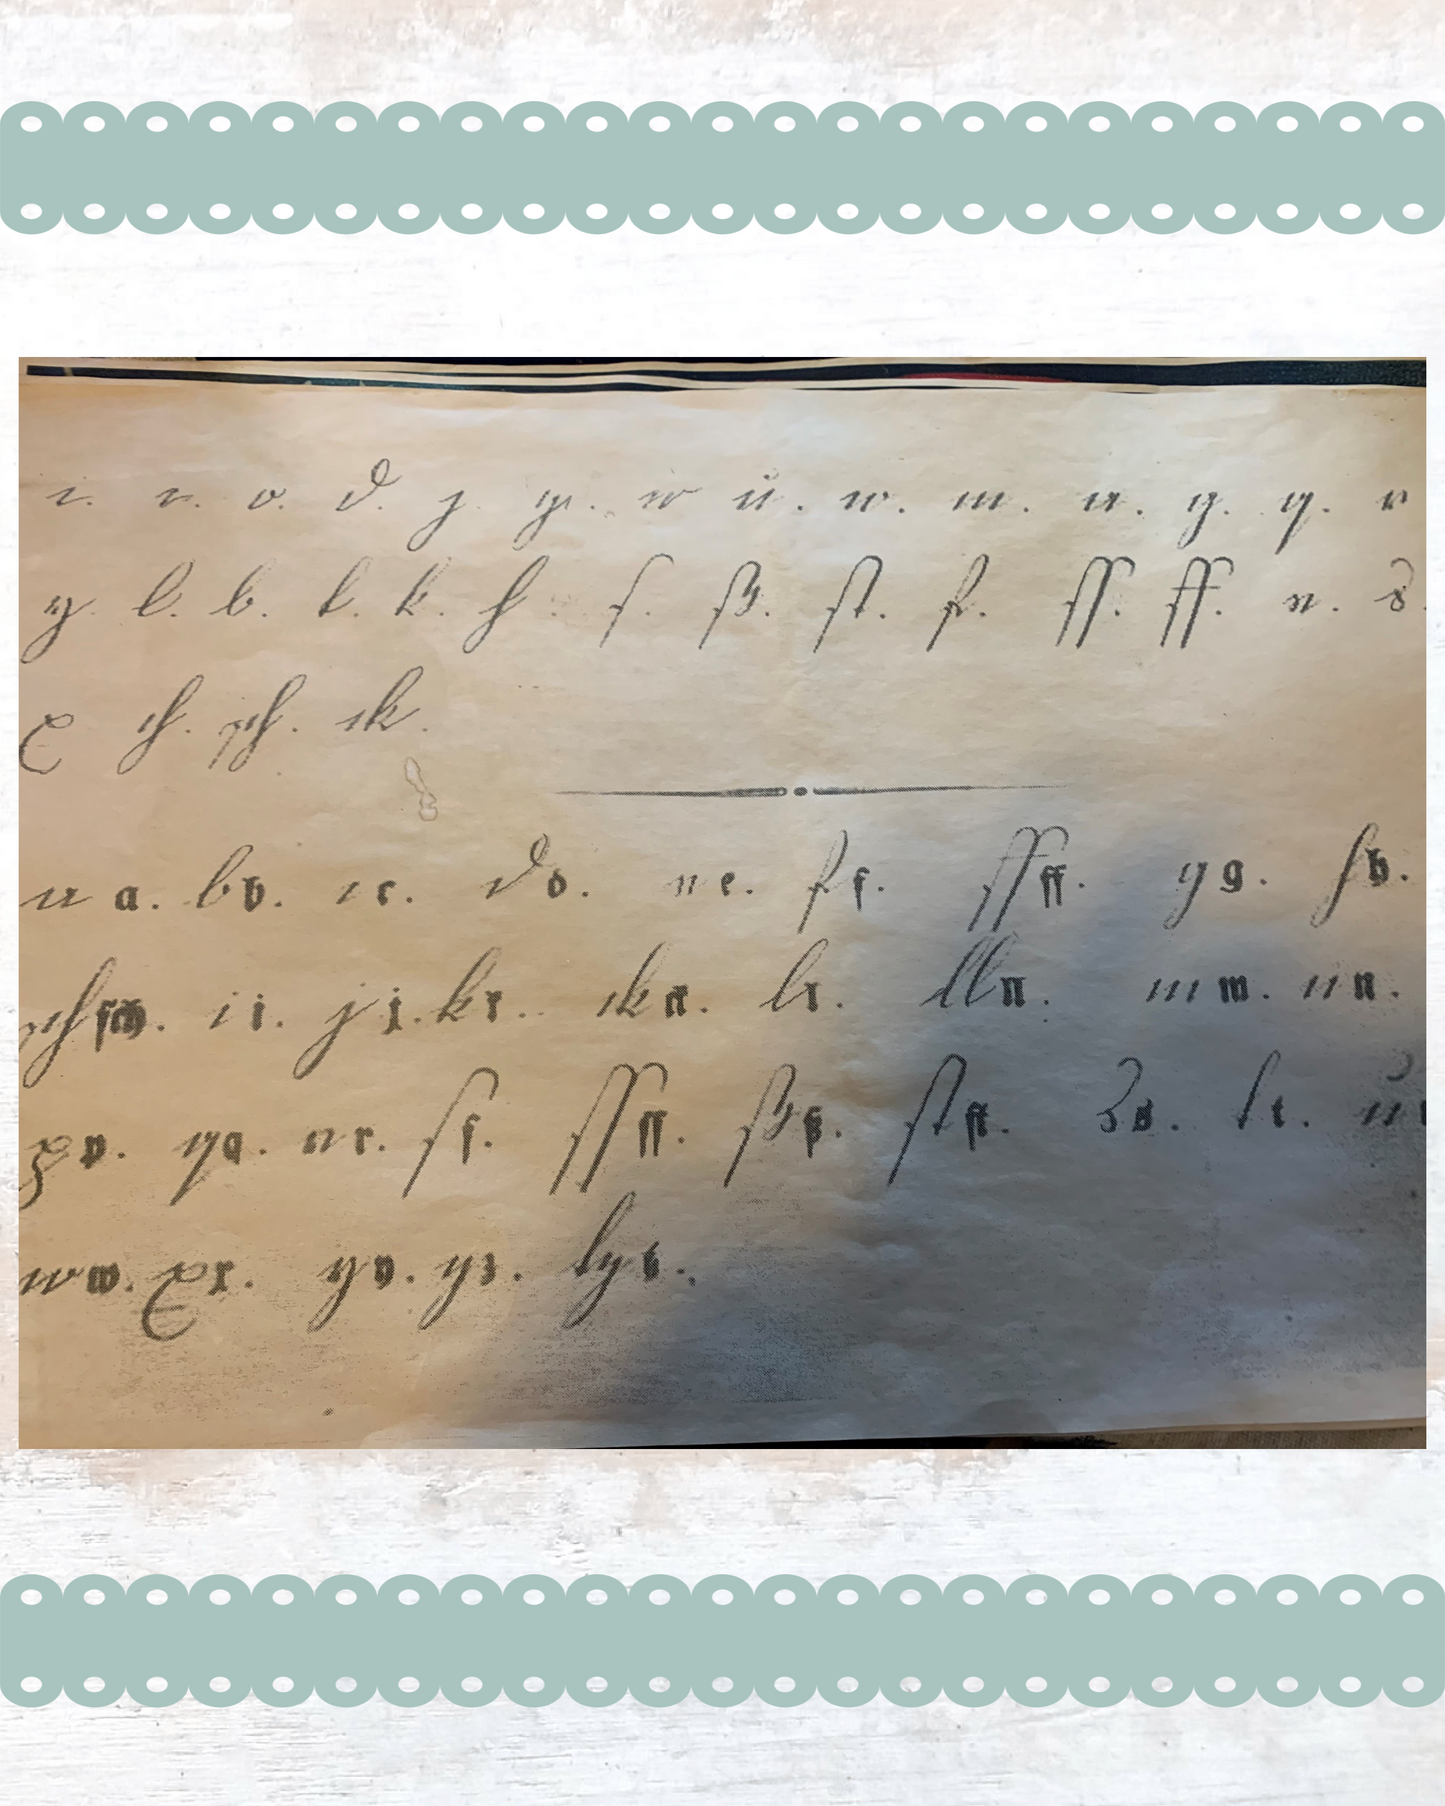 o. d. j. u. w. m. a. g. q. r
z. l. b. t. k. h. ſ. ß. ſt. f. ſſ. ff. e. s.
x ch. ſch. ck.
a a. b b. c c. d d. e e. f f. ff ff. g g. h h.
ſch ſch. i i. j j. k k. ck ck. l l. ll ll. m m. n n.
p p. q q. r r. ſ ſ. ſſ ſſ. ß ß. ſt ſt. s s. t t. u u
w w. x x. y y. z z. tz tz.